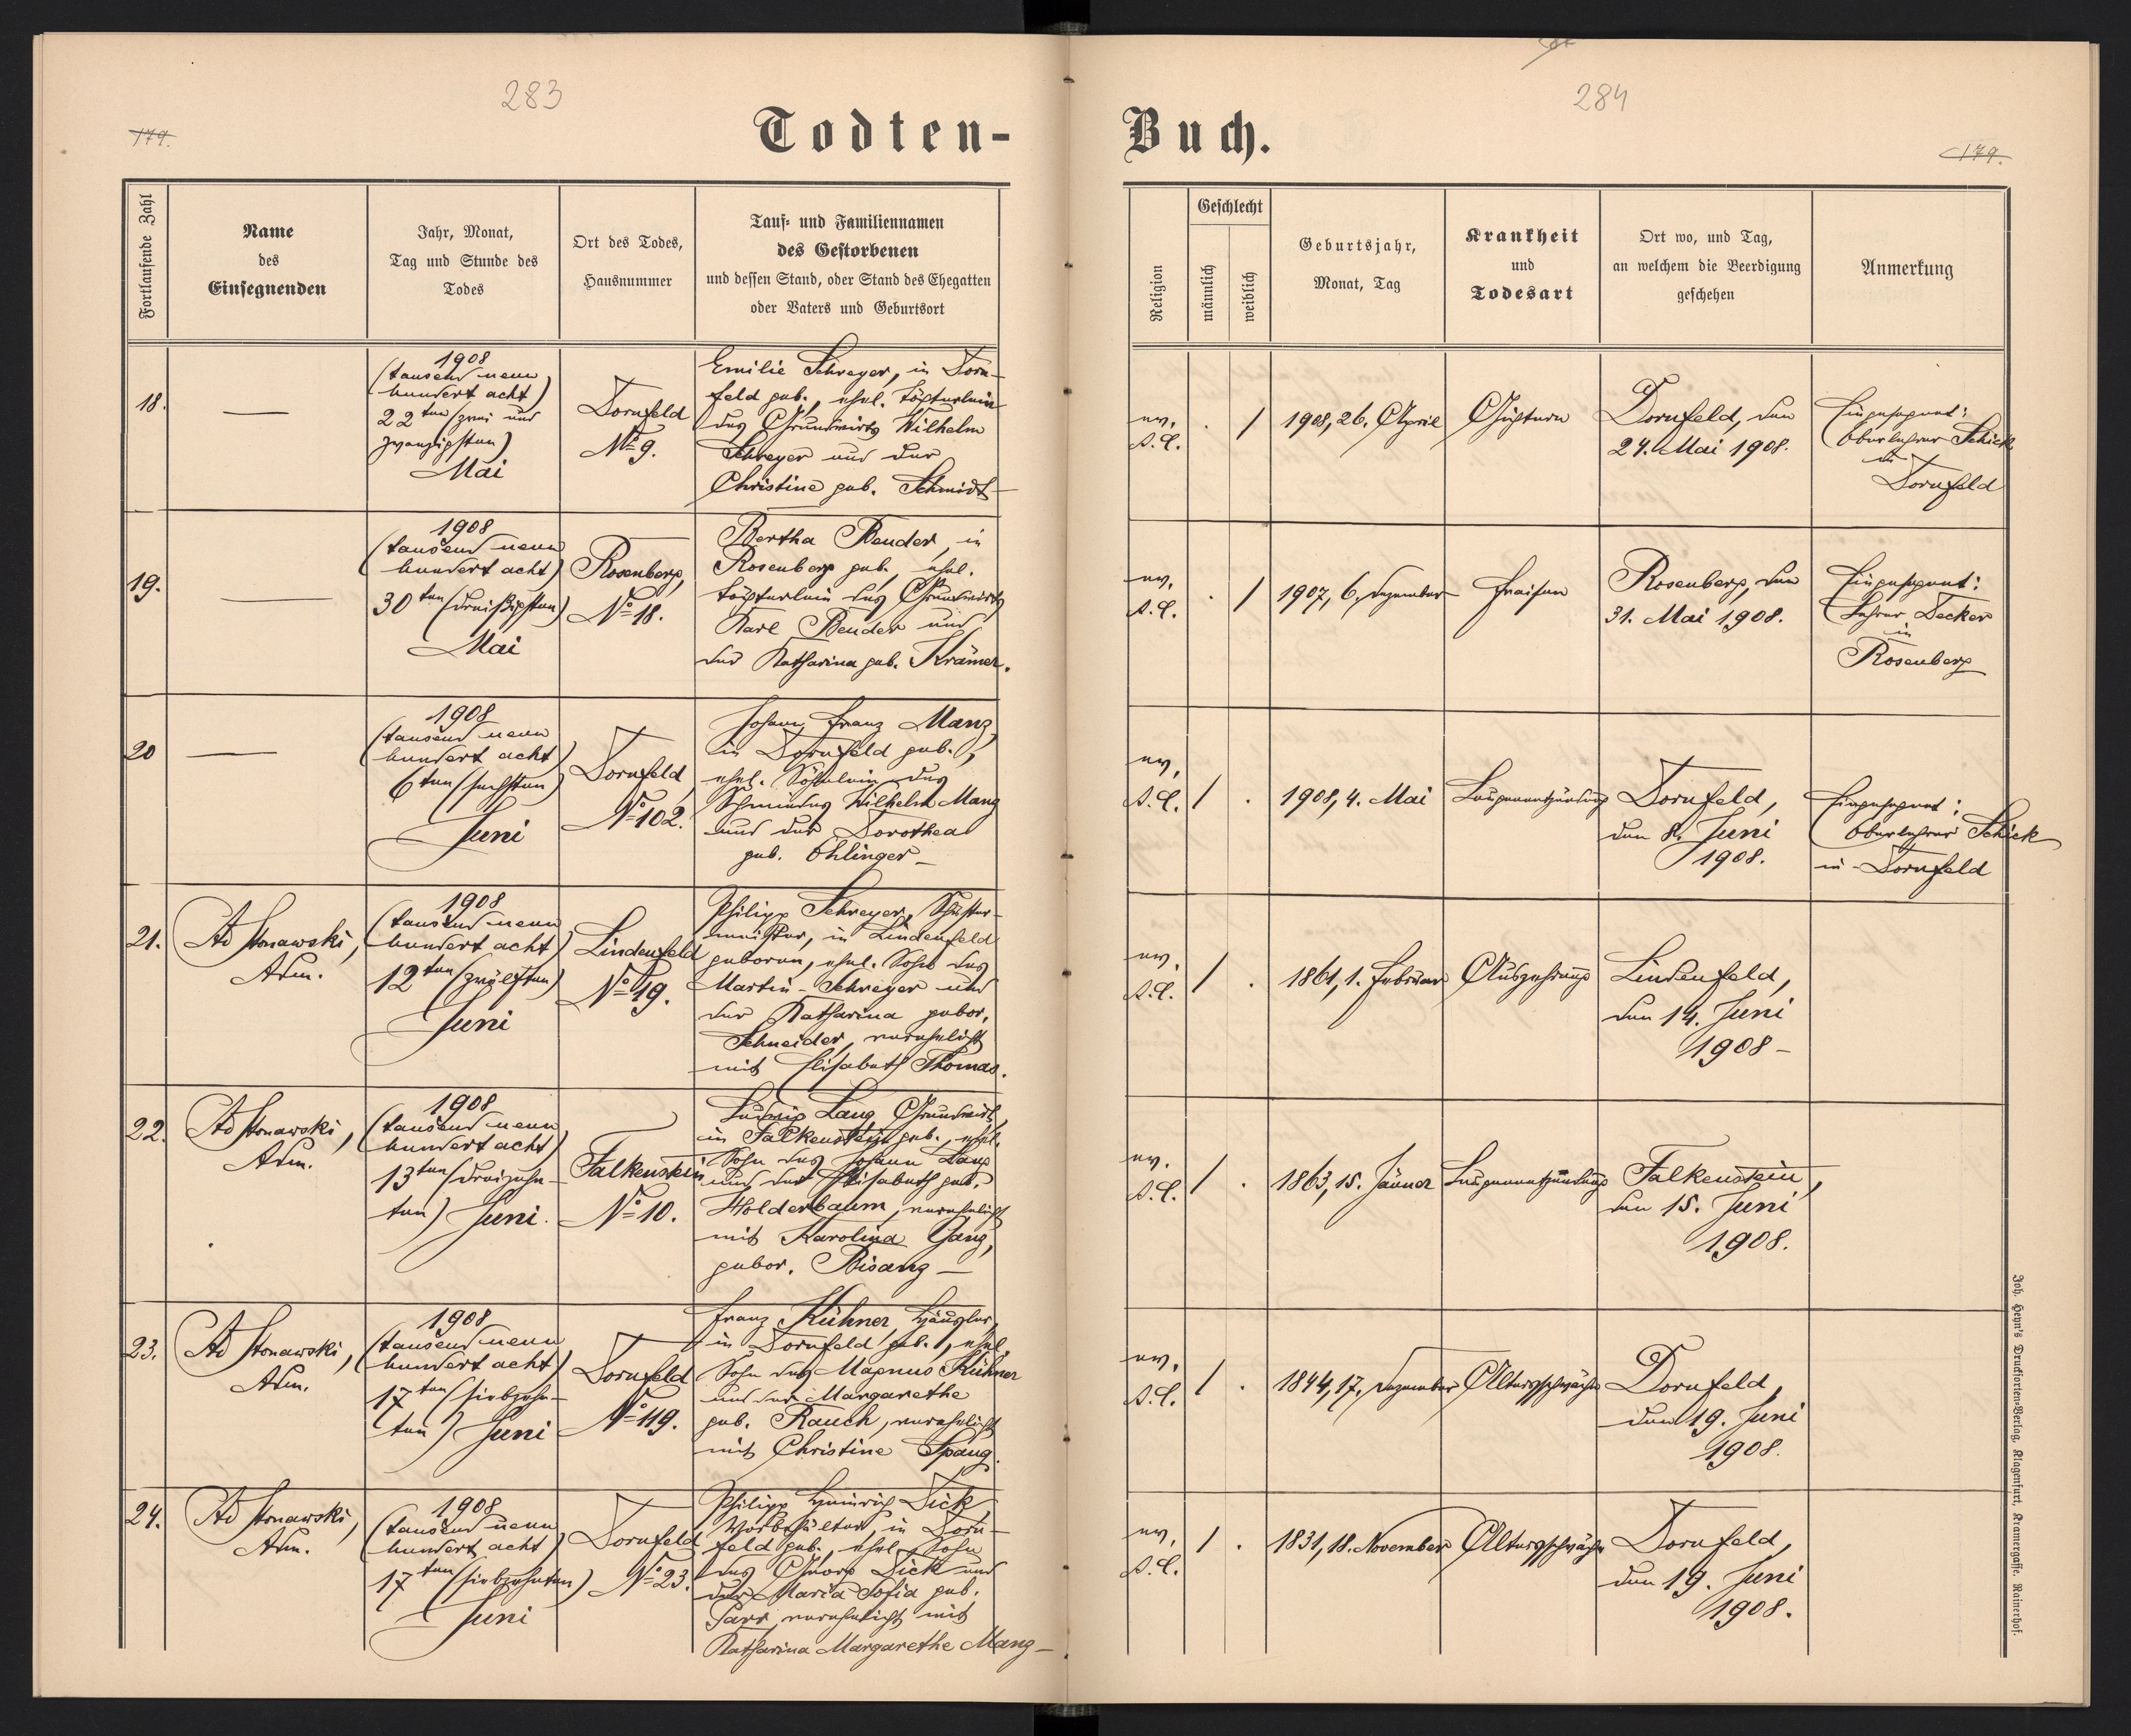 283
179.
Todten-
Fortlaufende Zahl
Name
des
Einsegnenden
Jahr, Monat,
Tag und Stunde des
Todes
Ort des Todes,
Hausnummer
Tauf- und Familiennamen
des Gestorbenen
und dessen Stand, oder Stand des Ehegatten
oder Vaters und Geburtsort
18.
1908
(tausend neun
hundert acht)
22ten (zwei und
zwanzigsten)
Mai
Dornfeld
No 9.
Emilie Schreyer, in Dorn-
feld geb., ehel. Töchterlein
des Grundwirts Wilhelm
Schreyer und der
Christine geb. Schmidt
19.
1908
(tausend neun
hundert acht)
30ten (dreißigsten)
Mai
Rosenberg,
No 18.
Bertha Bender, in
Rosenberg geb., ehel.
Töchterlein des Grundwirts
Karl Bender und
der Katharina geb. Krämer.
20
1908
(tausend neun
hundert acht)
6ten (sechsten)
Juni
Dornfeld,
No 102.
Johann Franz Manz,
in Dornfeld geb.,
ehel. Söhnlein des
Schmiedes Wilhelm Manz
und der Dorothea
geb. Öhlinger
21.
Ad Stonawski,
Adm.
1908
(tausend neun
hundert acht)
12ten (zwölften)
Juni
Lindenfeld
No 19.
Philipp Schreyer, Schuster-
meister, in Lindenfeld
geboren, ehel. Sohn des
Martin Schreyer und
der Katharina gebor.
Schneider, verehelicht
mit Elisabeth Thomas.
22.
Ad Stonawski,
Adm.
1908
(tausend neun
hundert acht)
13ten (dreizehn-
ten) Juni.
Falkenstein
No 10.
Ludwig Lang, Grundwirt,
in Falkenstein geb., ehel.
Sohn des Johann Lang
und der Elisabeth geb.
Holderbaum, verehelicht
mit Karolina Lang,
gebor. Bisanz
23.
Ad Stonawski,
Adm.
1908
(tausend neun
hundert acht)
17ten (siebzehn-
ten) Juni
Dornfeld
No 119.
Franz Kühner, Häusler,
in Dornfeld geb., ehel.
Sohn des Magnus Kühner
und der Margarethe
geb. Rauch, verehelicht
mit Christine Spang.
24.
Ad Stonawski,
Adm.
1908
(tausend neun
hundert acht)
17ten (siebzehnten)
Juni
Dornfeld
No 23.
Philipp Heinrich Sick,
Vorbehälter, in Dorn-
feld geb., ehel. Sohn
des Georg Sick und
der Maria Sofia geb.
verehelicht mit
Katharina Margarethe Manz
284
179.
Buch.
Religion
Geschlecht
männlich
weiblich
Geburtsjahr,
Monat, Tag
Krankheit
und
Todesart
Ort wo, und Tag,
an welchem die Beerdigung
geschehen
Anmerkung
ev.
A.C.
. /
1908, 26. April
Gichtern
Dornfeld, den
24. Mai 1908.
Eingesegnet:
Oberlehrer Schick
in
Dornfeld
ev.
A.C.
. /
1907, 6. Dezember
Fraisen
Rosenberg, den
31. Mai 1908.
Eingesegnet:
Lehrer Decker
in
Rosenberg
ev.
A.C.
/ .
1908, 4. Mai
Lungenentzündung
Dornfeld,
den 8. Juni
1908.
Eingesegnet:
Oberlehrer Schick
in Dornfeld
ev.
A.C.
/ .
1861, 1. Februar
Auszehrung
Lindenfeld,
den 14. Juni
1908
ev.
A.C.
/ .
1863, 15. Jänner
Lungenentzündung
Falkenstein,
den 15. Juni
1908.
ev.
A.C.
/ .
1844, 17. Dezember
Altersschwäche
Dornfeld,
den 19. Juni
1908.
ev.
A.C.
/ .
1831, 18. November
Altersschwäche
Dornfeld,
den 19. Juni
1908.
Joh. Heyn's Drucksorten-Verlag, Klagenfurt, Kramergasse, Rainerhof.